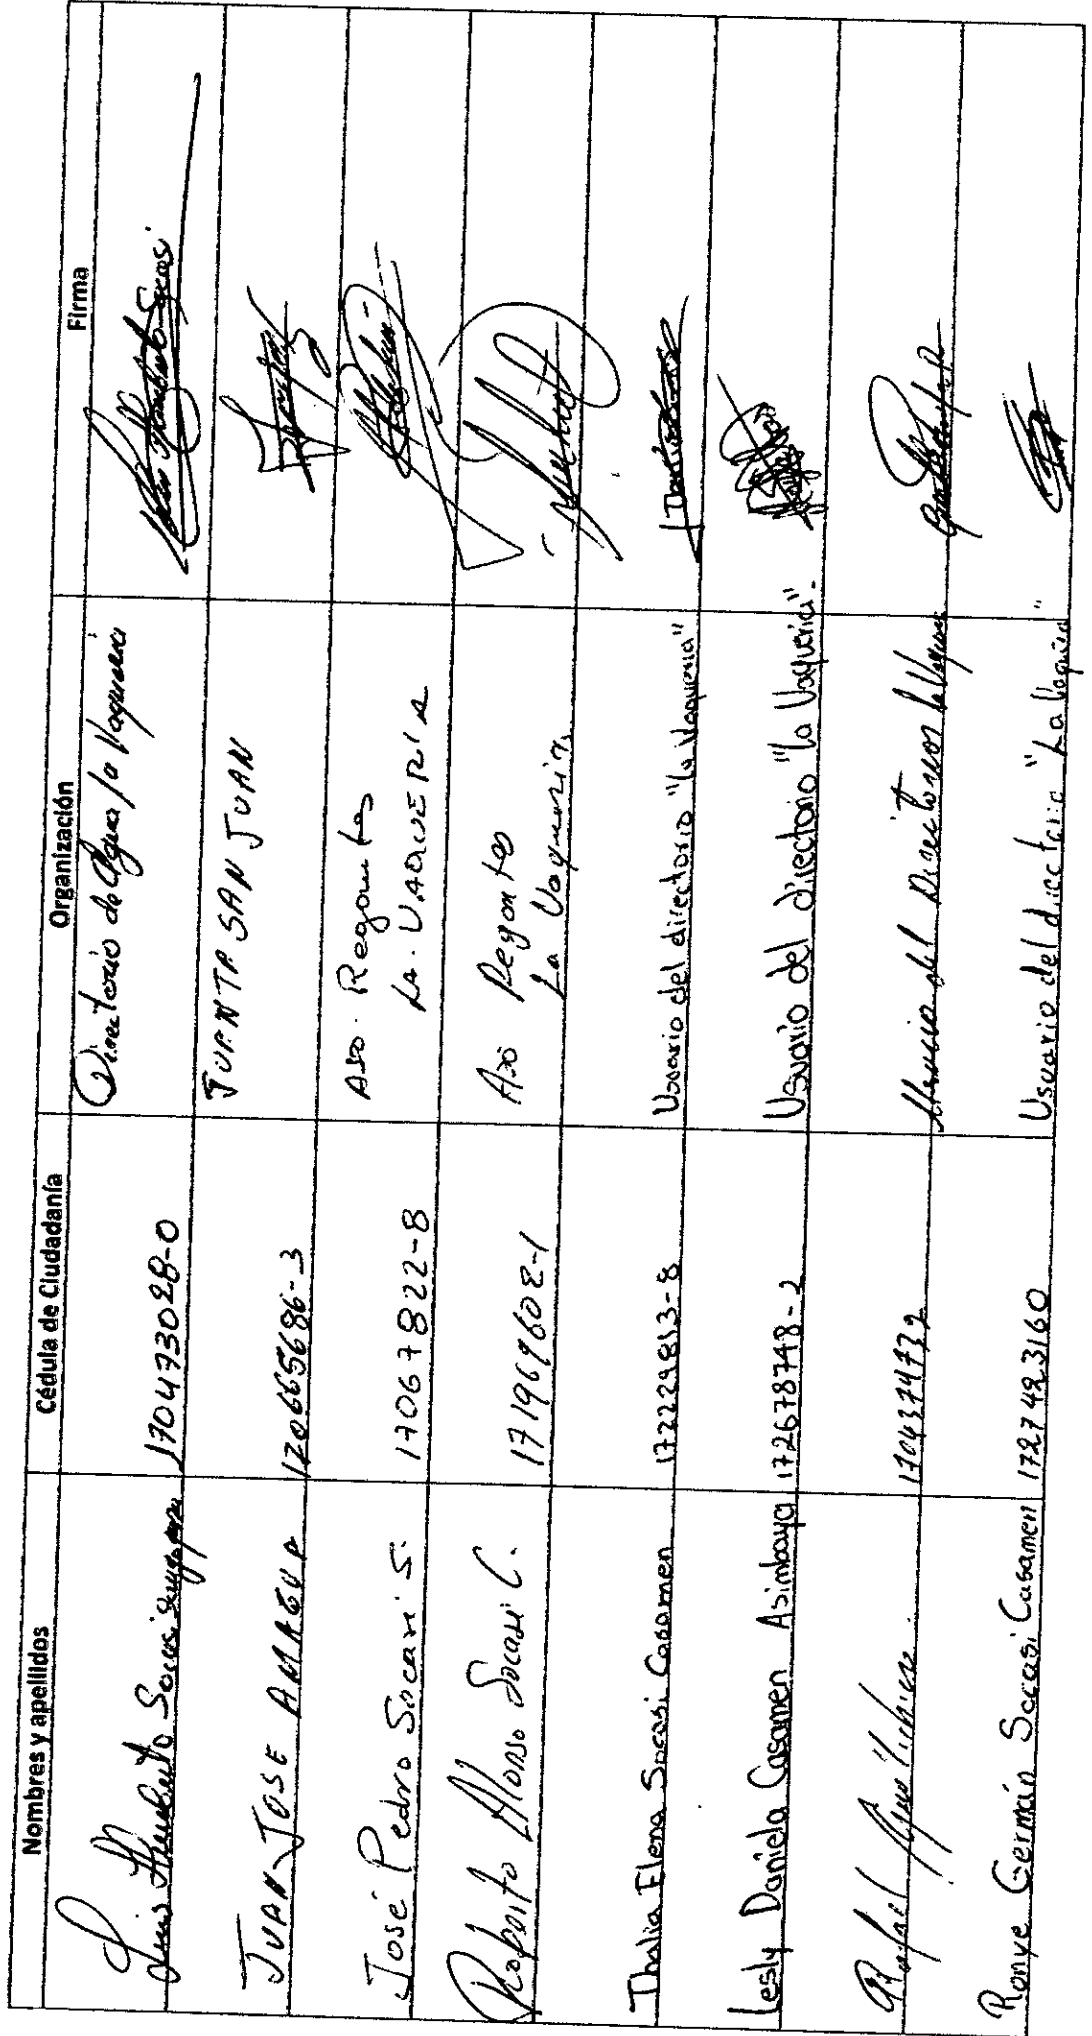 Nombres y apellidos Cédula de Ciudadanía Organización Firma
Luis Humberto Socasi 170473028-0 Directorio de Agua la Vaqueria
JUAN JOSE AMAGUA 170665686-3 JUANTA SAN JUAN
José Pedro Socasi S. 170678822-8 Aso. Regantes
LA. VAQUERIA
Roberto Alonso Socasi C. 171969602-1 Aso Regantes
La Vaqueria
Thalia Elena Socasi Casamen 172229853-8 Usuario del directorio "la Vaqueria"
Lesly Daniela Casamen Asimbaya 172678748-2 Usuario del directorio "la Vaqueria".
Rafael 1704374732 del Directorios la Vaqueria
Ronye Germán Socasi Casamen 1727493160 Usuario del directorio "La Vaqueria"